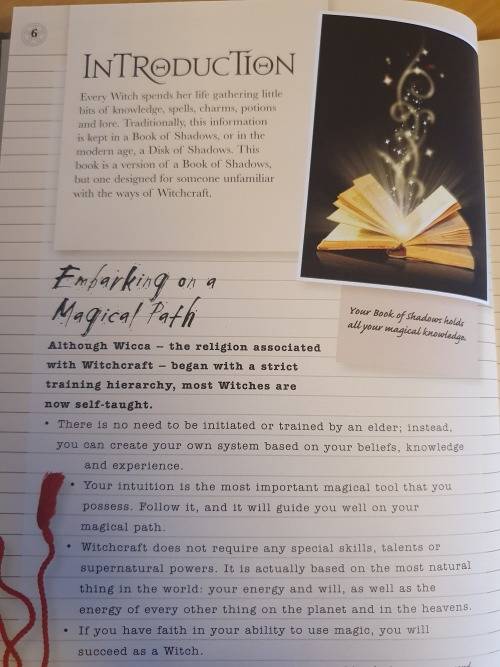 6
INTRODUCTION
Every Witch spends her life gathering little
bits of knowledge, spells, charms, potions
and lore. Traditionally, this information
is kept in a Book of Shadows, or in the
modern age, a Disk of Shadows. This
book is a version of a Book of Shadows,
but one designed for someone unfamiliar
with the ways of Witchcraft.
Your Book of Shadows holds
all your magical knowledge.
Embarking on a
Magical Path
Although Wicca – the religion associated
with Witchcraft – began with a strict
training hierarchy, most Witches are
now self-taught.
• There is no need to be initiated or trained by an elder; instead,
you can create your own system based on your beliefs, knowledge
and experience.
• Your intuition is the most important magical tool that you
possess. Follow it, and it will guide you well on your
magical path.
• Witchcraft does not require any special skills, talents or
supernatural powers. It is actually based on the most natural
thing in the world: your energy and will, as well as the
energy of every other thing on the planet and in the heavens.
• If you have faith in your ability to use magic, you will
succeed as a Witch.